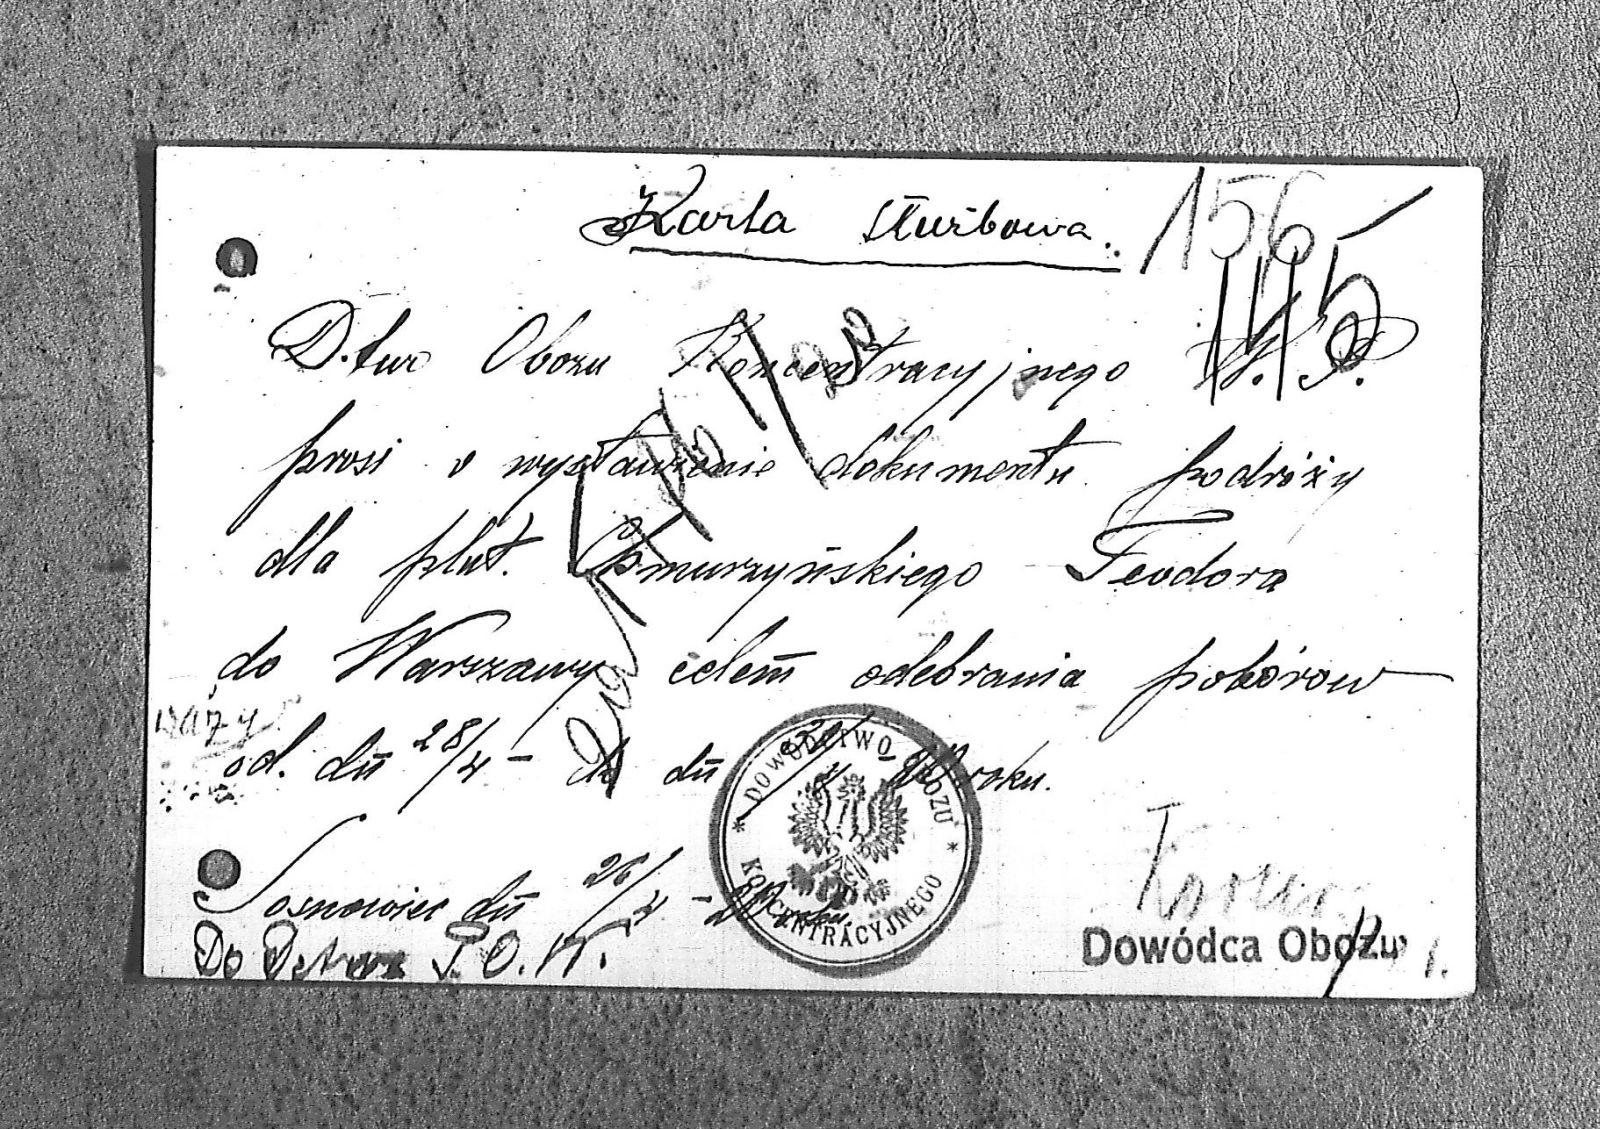 Karta służbowa.
156
D-two Obozu Koncentracyjnego W. P.
prosi o wystawienie dokumentu podróży
dla plut. Chmurzyńskiego Teodora
do Warszawy celem odebrania poborów
waży
od. dn 28/4 - do dn roku.
DOWÓDZTWO OBOZU
KONCENTRACYJNEGO
Sosnowiec dn 26/4 - 20
Do P. O. W.
Dowódca Obozu